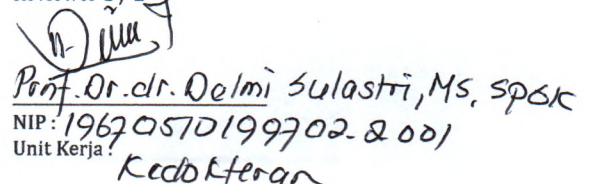 Prof. Dr. dr. Delmi Sulastri, MS, SpGK
NIP : 19670510199702 2 001
Unit Kerja :
Kedokteran